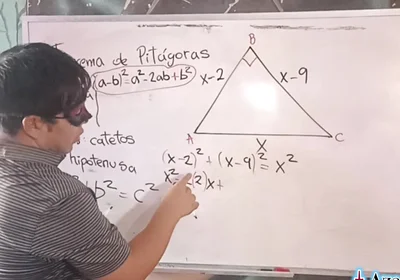 de Pitágoras
(a-b)²=a²-2ab+b²
B
x-2
x-9
A
x
C
catetos
hipotenusa
b² = c²
(x-2)² + (x-9)² = x²
(2)x+